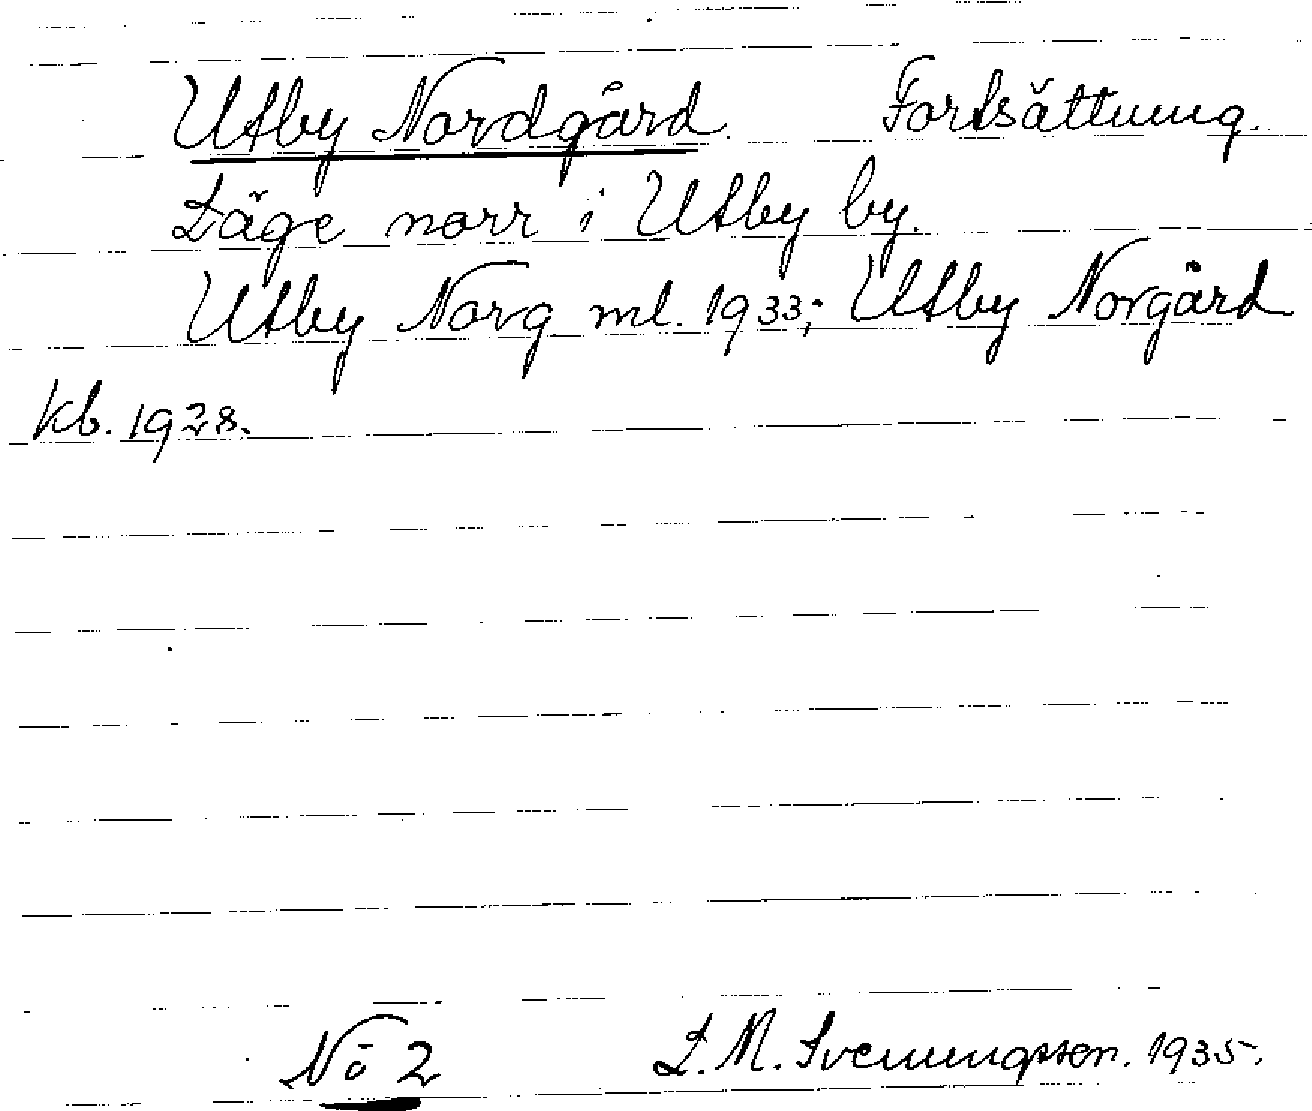 Utby Nordgård. Fortsättning.
Läge norr i Utby by.
Utby Norg ml. 1933; Utby Norgård
kb. 1928.
No 2 L. M. Svenungsson. 1935.